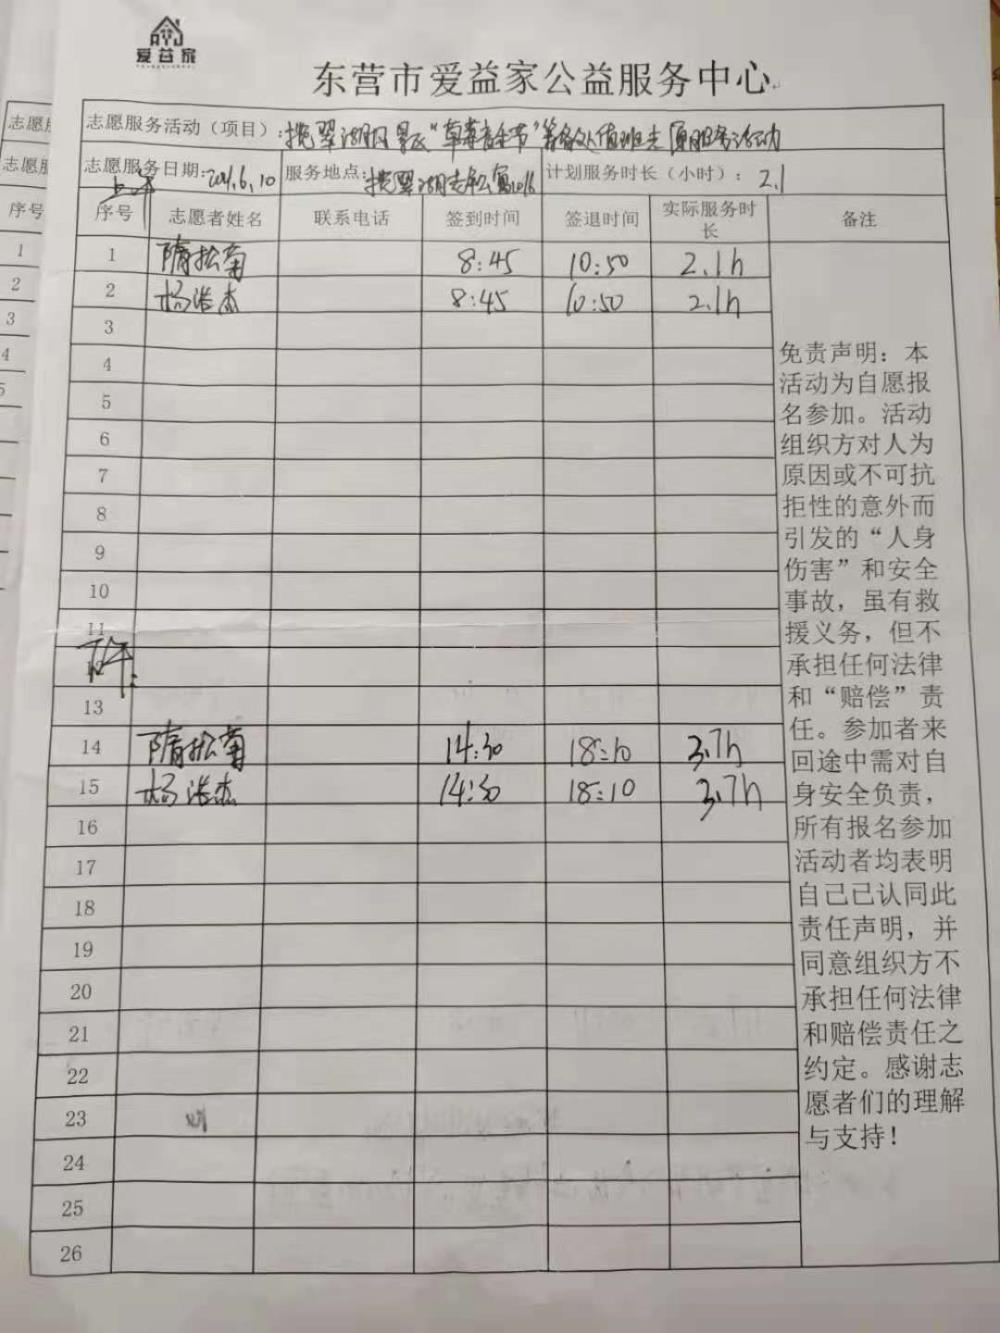 爱益家
东营市爱益家公益服务中心
志愿服务活动（项目）：揽翠湖风景区“草莓音乐节”筹备处值班志愿服务活动
志愿服务日期: 2021.6.10 服务地点: 揽翠湖 计划服务时长（小时）： 2.1
上午
序号 志愿者姓名 联系电话 签到时间 签退时间 实际服务时长 备注
1 隋松菊 8:45 10:50 2.1h
2 杨浩杰 8:45 10:50 2.1h
3
4
5
6
7
8
9
10
11
下午:
13
14 隋松菊 14:30 18:10 3.7h
15 杨浩杰 14:30 18:10 3.7h
16
17
18
19
20
21
22
23
24
25
26
免责声明：本
活动为自愿报
名参加。活动
组织方对人为
原因或不可抗
拒性的意外而
引发的“人身
伤害”和安全
事故，虽有救
援义务，但不
承担任何法律
和“赔偿”责
任。参加者来
回途中需对自
身安全负责，
所有报名参加
活动者均表明
自己已认同此
责任声明，并
同意组织方不
承担任何法律
和赔偿责任之
约定。感谢志
愿者们的理解
与支持！
志愿
志愿
序号
1
2
3
4
5